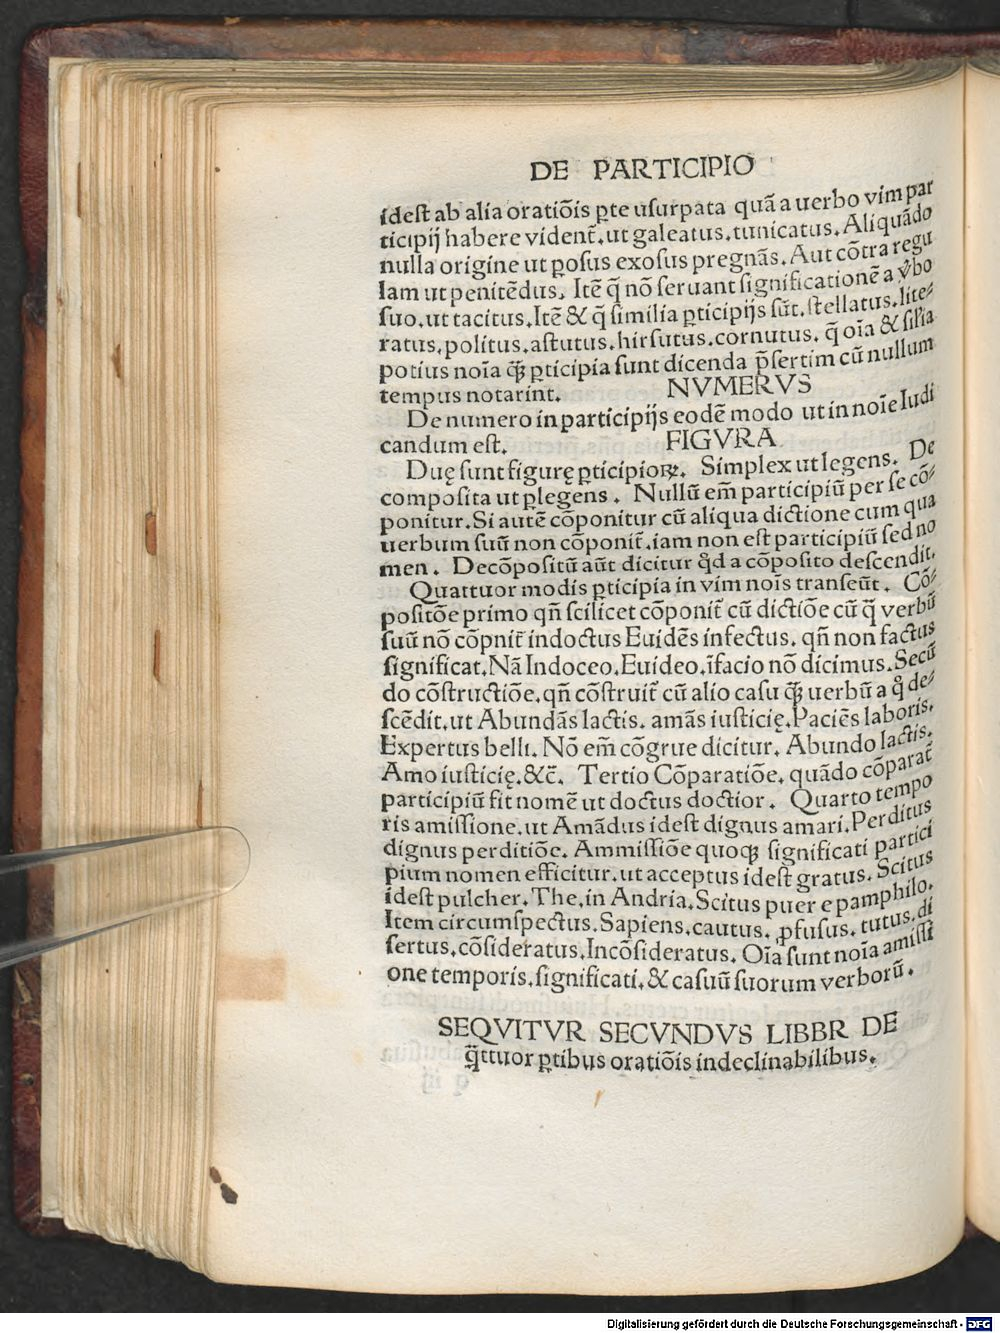 DE PARTICIPIO
idest ab alia oratiōis ꝑte usurpata quā a uerbo vim par
ticipij habere vident̄.ut galeatus.tunicatus.Aliquādo
nulla origine ut ꝑosus exosus pregnās.Aut cōtra regu
lam ut penitēdus. Itē q̄ nō seruant significationē a v̄bo
suo.ut tacitus.Itē & q̄ similia ꝑticipijs sūt.stellatus.lite⸗
ratus.politus.astutus.hirsutus.cornutus. q̄ oīa & sil'ia
potius noīa qꝫ̄ ꝑticipia sunt dicenda p̄sertim cū nullum
tempus notarint.
NVMERVS
De numero in participijs eodē modo ut in noīe Iudi
candum est.
FIGVRA
Duę sunt figurę ꝑticipioꝝ. Simplex ut legens. De
composita ut ꝑlegens . Nullū em̄ participiū per se cō⸗
ponitur.Si autē cōponitur cū aliqua dictione cum qua
uerbum suū non cōponit̄.iam non est participiū sed no
men . Decōpositū aūt dicitur qd̄ a cōposito descendit.
Quattuor modis ꝑticipia in vim noīs transeūt . Cō⸗
positōe primo qn̄ scilicet cōponit̄ cū dictiōe cū q̄ verbū
suū nō cōpnit̄ indoctus Euidēs infectus. qn̄ non factus
significat.Nā Indoceo.Euideo.īfacio nō dicimus.Secū
do cōstructiōe.qn̄ cōstruit̄ cū alio casu qꝫ̄ uerbū a q̊ de⸗
scēdit.ut Abundās lactis. amās iusticię.Paciēs laboris.
Expertus belli. Nō em̄ cōgrue dicitur. Abundo lactis.
Amo iusticię.&c̄. Tertio Cōparatiōe. quādo cōparat̄
participiū fit nomē ut doctus doctior . Quarto tempo
ris amissione.ut Amādus idest dignus amari.Perditus
dignus perditiōe. Ammissiōe quoqꝫ significati partici
pium nomen efficitur.ut acceptus idest gratus. Scitus
idest pulcher.The.in Andria.Scitus puer e pamphilo.
Item circumspectus.Sapiens.cautus. ꝓfusus. tutus.di
sertus.cōsideratus.Incōsideratus. Oīa sunt noīa amissi
one temporis.significati.& casuū suorum verborū.
SEQVITVR SECVNDVS LIBBR DE
q̄ttuor ꝑtibus oratiōis indeclinabilibus.
Digitalisierung gefördert durch die Deutsche Forschungsgemeinschaft - DFG